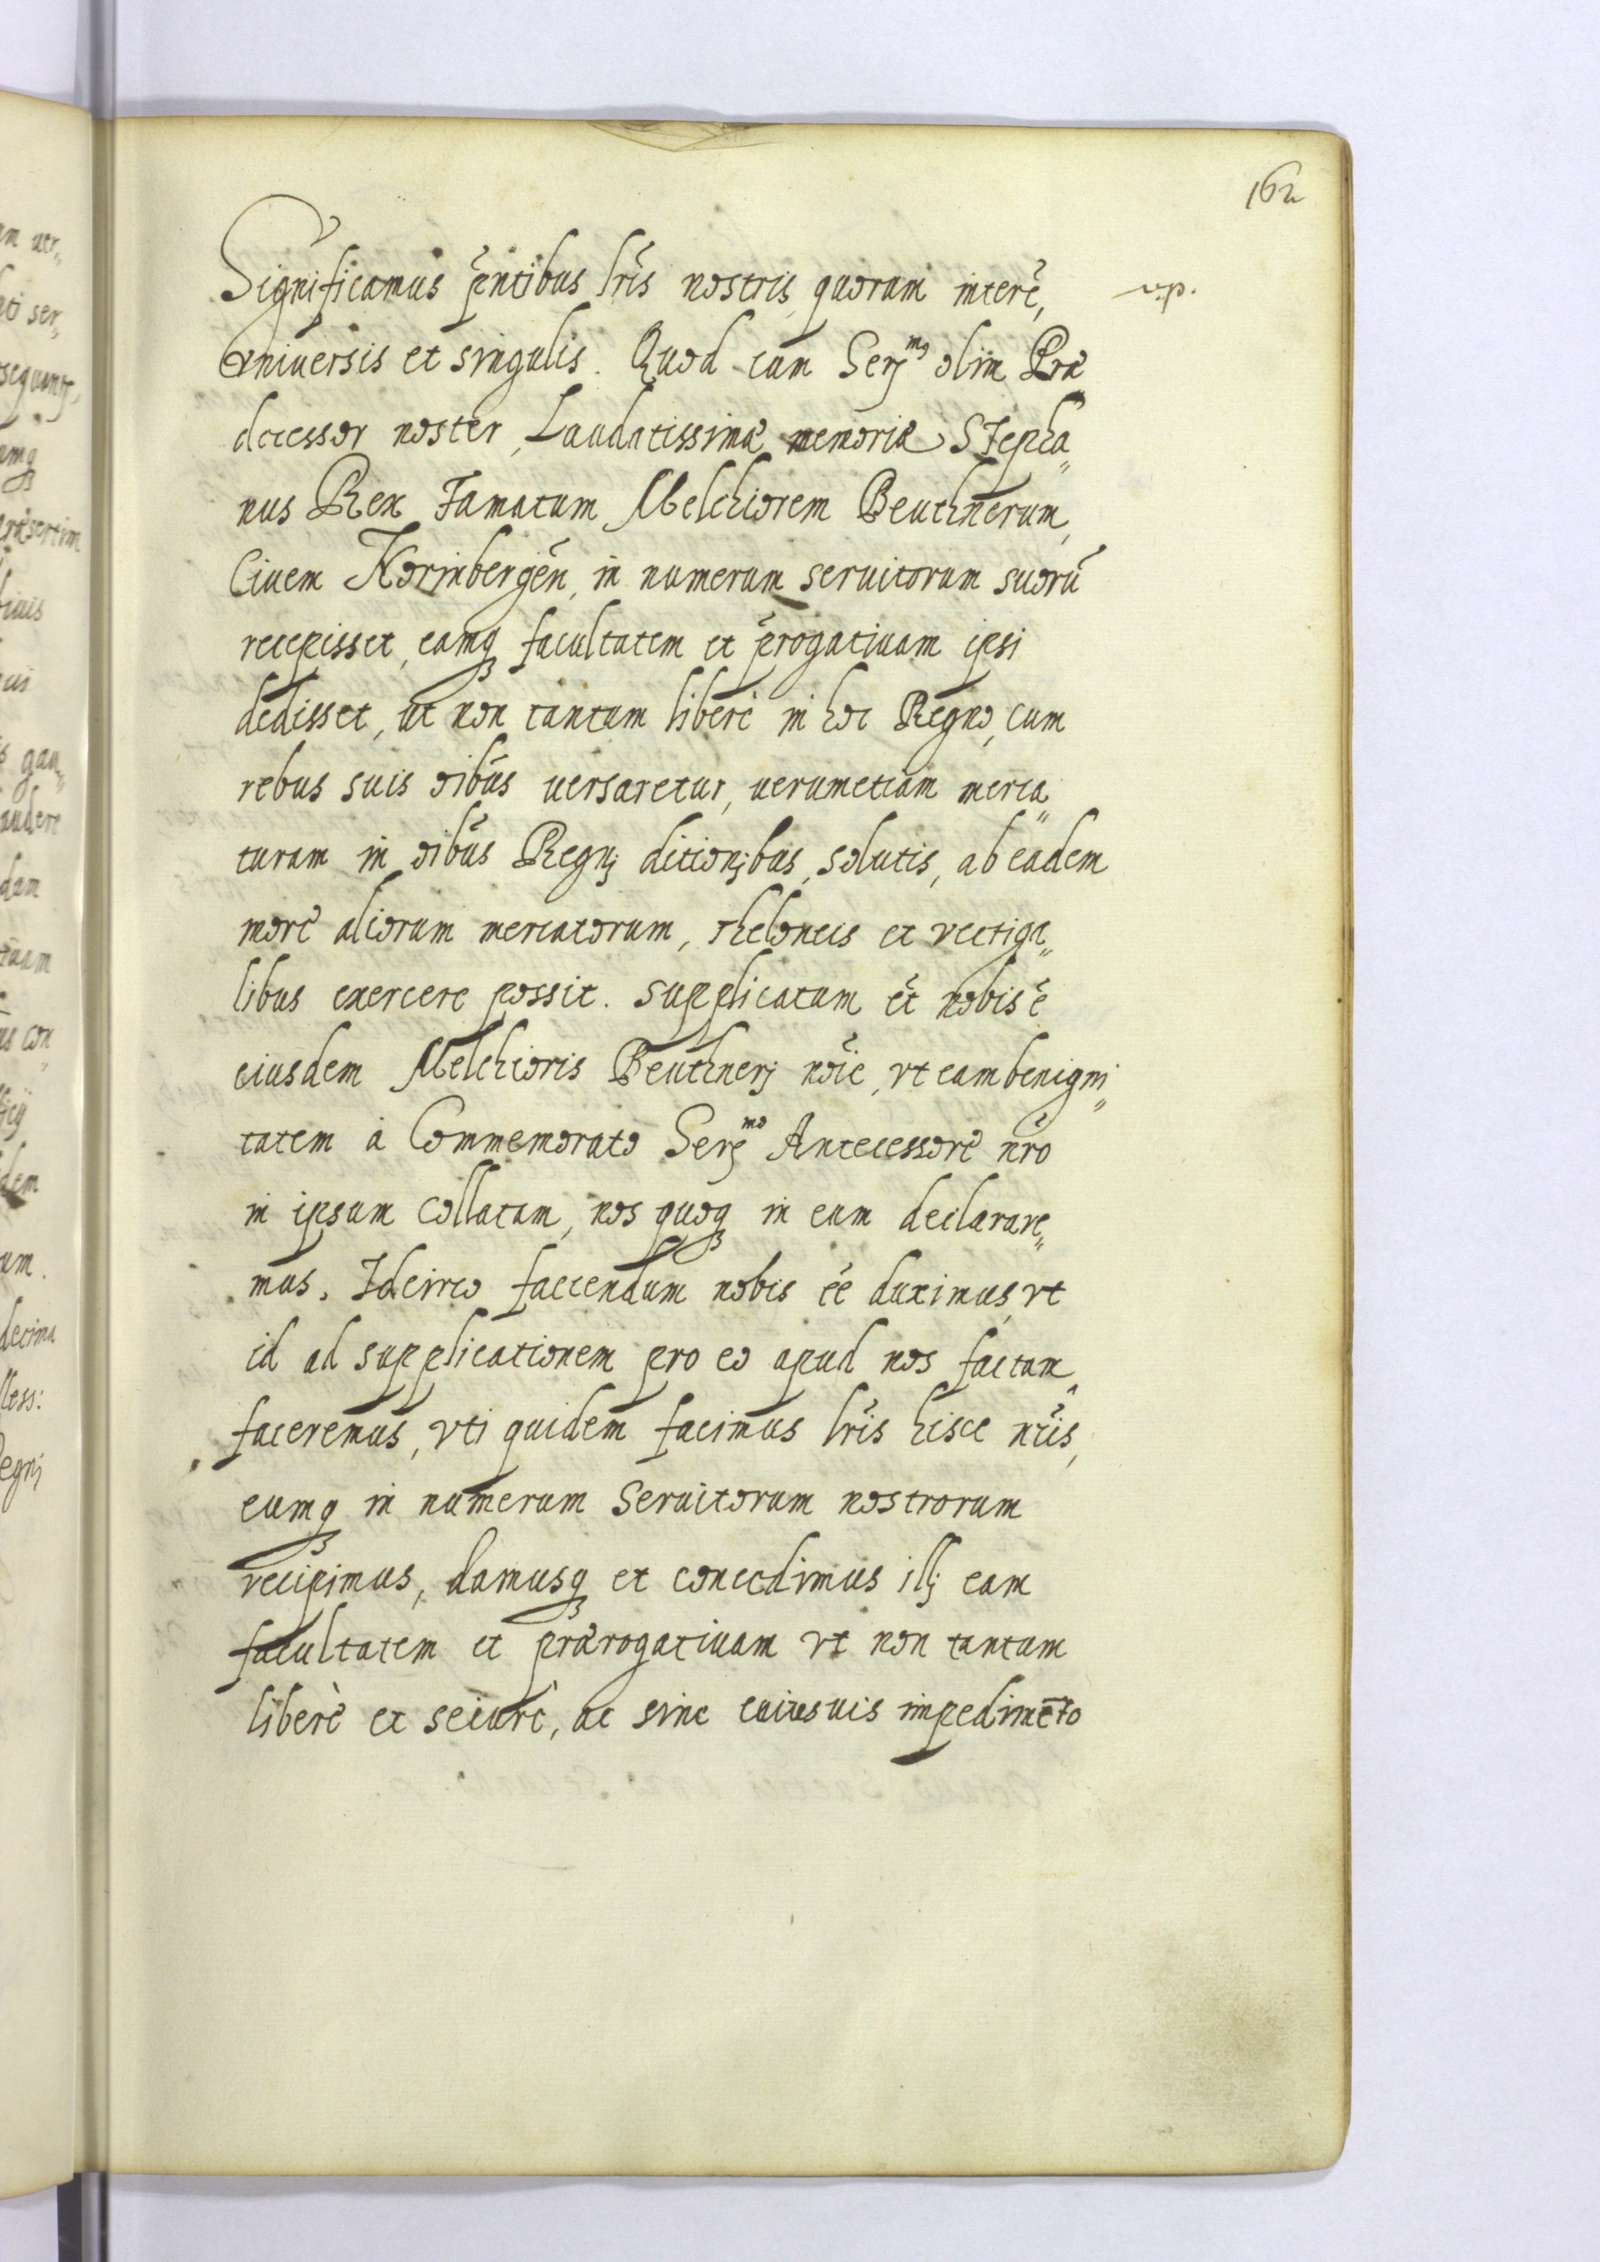 162
Significamus p̄ntibus lr̄is nostris, quorum interē, v.p.
vniuersis et singulis. Quod cum Serᵐᵘˢ olim Præ
decessor noster, Laudatissimæ memoriæ Stepha„
nus Rex Famatum Melchiorem Beuthnerum,
Ciuem Norinbergēn, in numerum seruitorum suorū
recepisset, eamq̃ facultatem et p̄rogatiuam ipsi
dedisset, ut non tantum liberè in hoc Regno, cum
rebus suis oībus uersaretur, uerumetiam merca„
turam in oībus Regnj ditionjbus, solutis, ab eadem
more aliorum mercatorum, theloneis et vectiga„
libus exercere possit. Supplicatum ēt nobis ē
eiusdem Melchioris Beuthnerj noīe, vt eam benigni„
tatem à Commemorato Serᵐᵒ Antecessore nr̄o
in ipsum collatam, nos quoq̃ in eum declarare„
mus. Idcirco faciendum nobis ēē duximus, vt
id ad supplicationem pro eo apud nos factam
faceremus, vti quidem facimus lr̄is hisce nr̄is,
eumq̃ in numerum Seruitorum nostrorum
recipimus, damusq̃ et concedimus illj eam
facultatem et prærogatiuam vt non tantum
liberè et securè, ac sine cuiusuis impedimēto